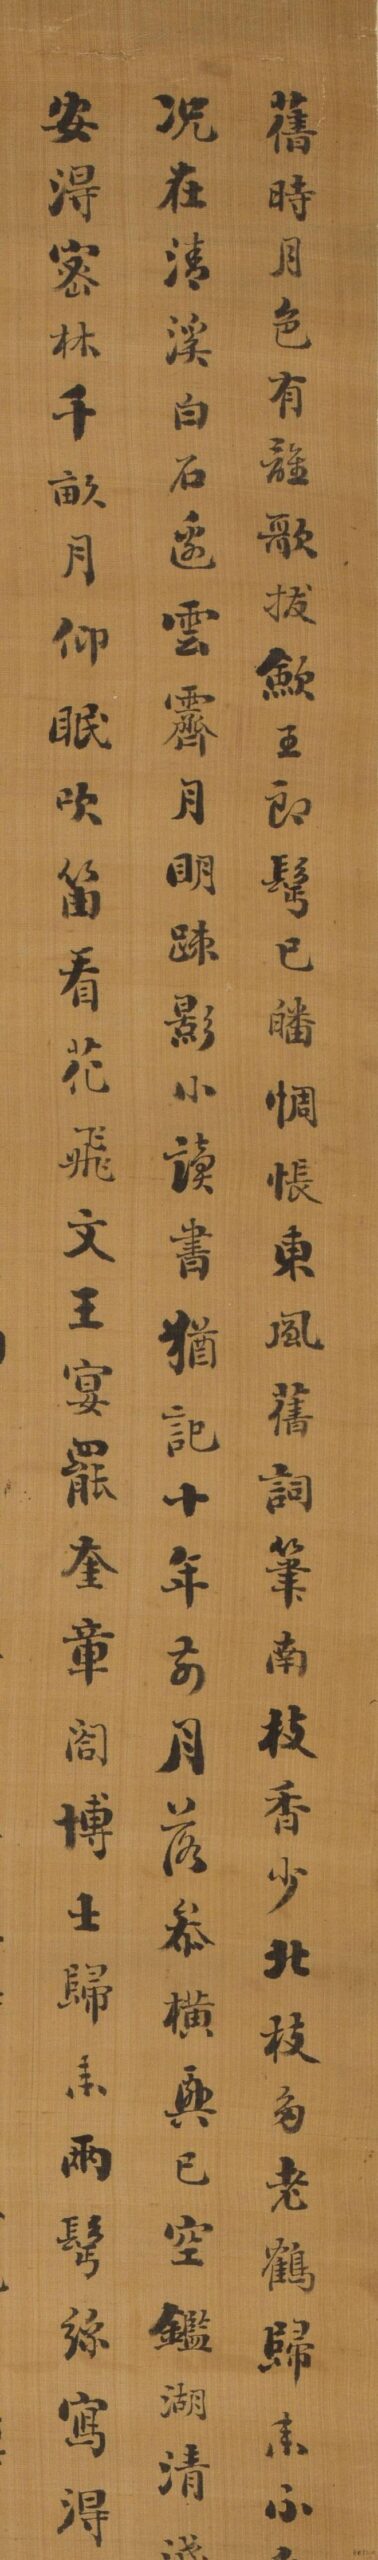 舊時月色有誰歌拔劒王郎鬢已皤惆悵東風舊詞筆南枝香少北枝多老鶴歸來不
況在清溪白石邊雲霽月明踈影小讀書猶記十年前月落參橫興已空鑑湖清淺
安得密林千畝月仰眠吹笛看花飛文王宴罷奎章閣博士歸來兩鬢絲寫得